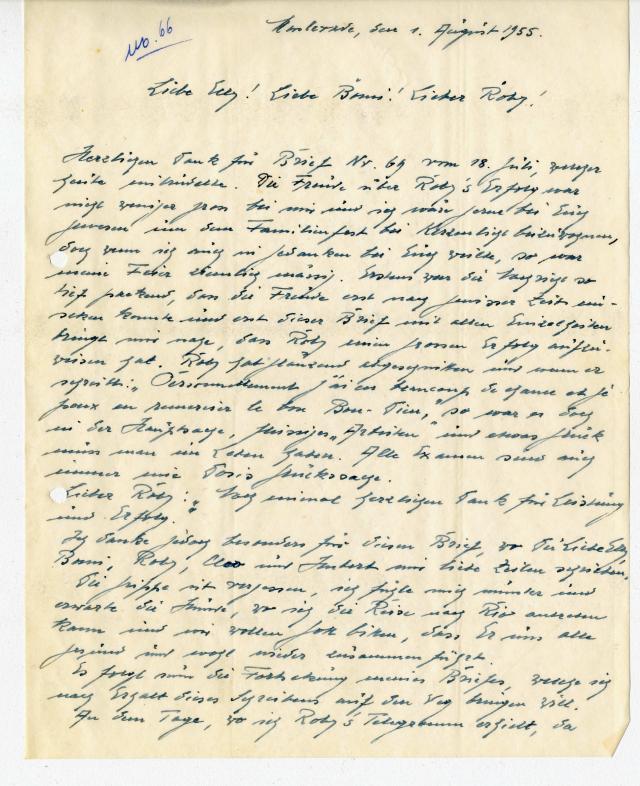 No. 66
den 1. August 1955.
Liebe Elly! Liebe Bomi! Lieber Roby!
Herzligen Dank für Brief Nr. 69 vom 18. Juli, welger
heute eintrudelte. Die Freude über Roby's Erfolg war
nigt weniger gross bei mir und ig wäre gerne bei Eug
gewesen um dem Familienfest bei Kerzenligt beizuwognen,
dog wenn ig aug in gedanken bei Eug weilte, so war
meine Feier ebenso mässig. Erstens war die Nagrigt so
tief packend, dass die Freude erst nag gewisser Zeit ein-
setzen konnte und erst dieser Brief mit allen Einzelgeiten
bringt mir nage, dass Roby einen grossen Erfolg aufzu-
weisen gat. Roby gat glänzend abgesgnitten und wenn er
sgreibt: " j'ai eu beaucoup de chance et je
peux en remercier le bon Bon-Dieu," so war es dog
in der Hauptsage, fleissiges "Arbeiten" und etwas glück
muss man im Leben gaben. Alle Examen sind aug
immer eine glückssage.
Lieber Roby: "Nog einmal gerzligen Dank für Leistung
und Erfolg."
Ig danke jedog besonders für diesen Brief, wo Du Liebe Elly,
Bomi, Roby, Cleo und mir liebe Zeilen sgrieben.
Die grippe ist vergessen, ig fügle mig munter und
erwarte die Stunde, wo ig die Reise nag Rio antreten
kann und wir wollen gott bitten, dass Er uns alle
gesund und wogl wieder zusammen fügrt.
Es folgt nun die Fortsetzung meines Briefes, welge ig
nag Ergalt dieses Sgreibens auf den Weg bringen will.
An dem Tage, wo ig Roby's Telegramm ergielt, da